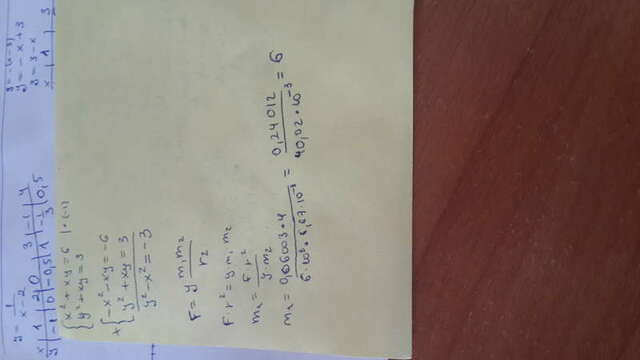 y = 1/(x-2)
x | 1 | 2 | 0 | 3 | -1 | 4
y | -1 | 0 | -0,5 | 1 | -1/3 | 0,5
y = -(x-3)
y = -x+3
y = 3-x
x | 1 | 3
{ x² + xy = 6 | • (-1)
{ y² + xy = 3
+ { -x² - xy = -6
y² + xy = 3
y² - x² = -3
F = y m₁m₂/r₂
F · r² = y m₁ m₂
m₁ = F · r²/(y · m₂)
m₁ = 0,06003 • 4/(6 · 10⁸ • 6,67 · 10⁻¹¹) = 0,24012/(40,02 • 10⁻³) = 6